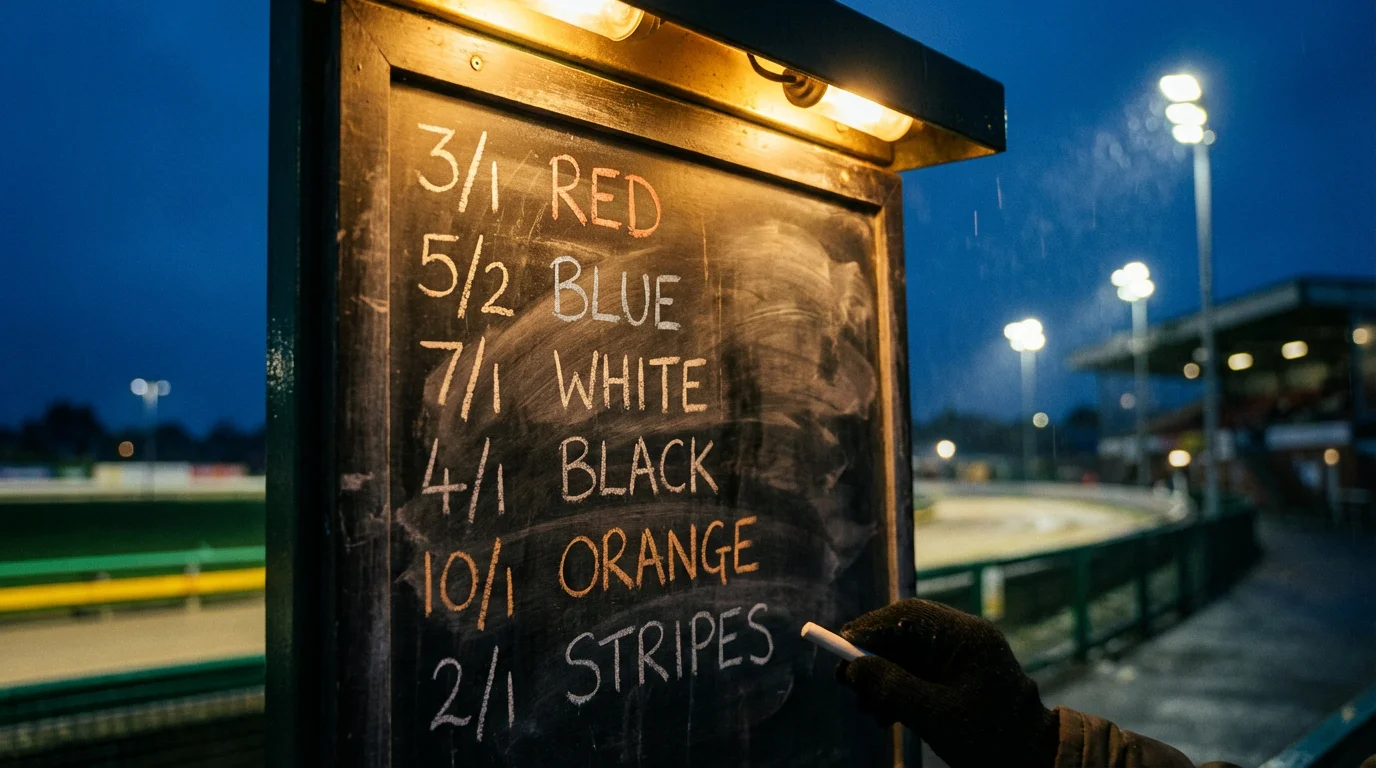 3/1 RED
5/2 BLUE
7/1 WHITE
4/1 BLACK
10/1 ORANGE
2/1 STRIPES